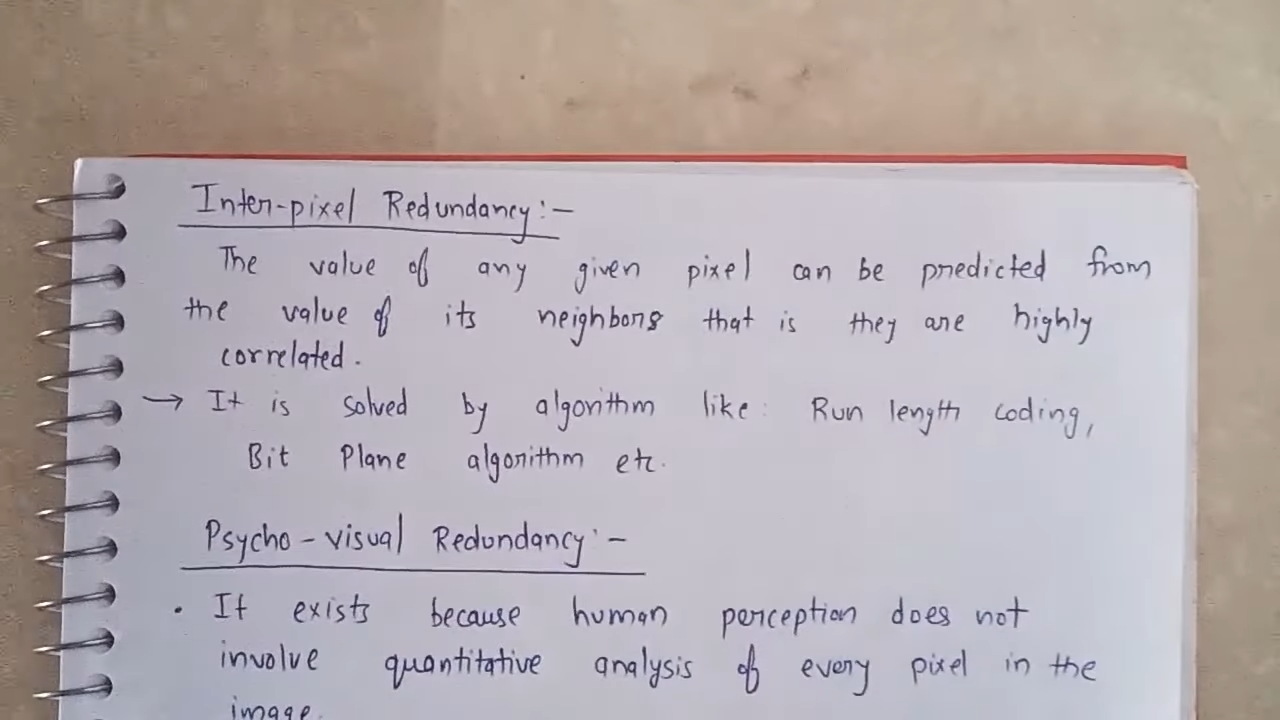 Inter-pixel Redundancy:-
The value of any given pixel can be predicted from
the value of its neighbors that is they are highly
correlated.
→ It is solved by algorithm like: Run length coding,
Bit Plane algorithm etc.
Psycho-visual Redundancy:-
• It exists because human perception does not
involve quantitative analysis of every pixel in the
image.